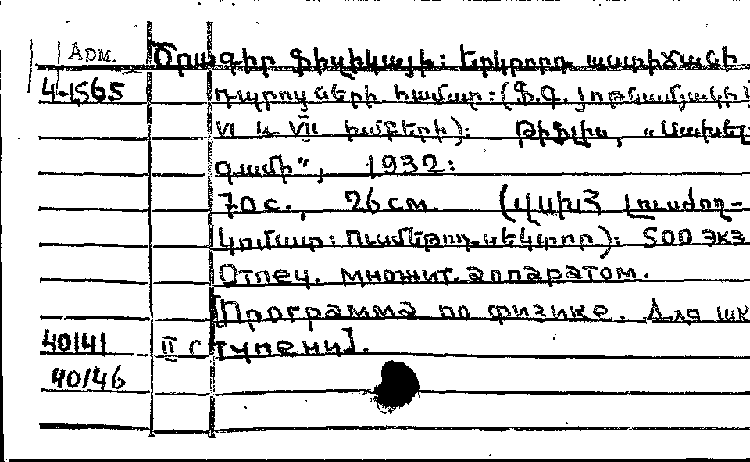 Арм. Ծրագիր ֆիզիկայի: Երկրորդ աստիճանի
4-1565 դպրոցների համար: (Ֆ.Գ. յոթնամյակի
VI և VII խմբերի): Թիֆլիս,
գամի", 1932:
70 с., 26 см. (Վսխհ Լուսժող-
կոմատ: Ուսմեթոդ-սեկտոր): 500 экз
Отпеч. множит. аппаратом.
[Программа по физике. Для шк
40141 II ступени].
40146